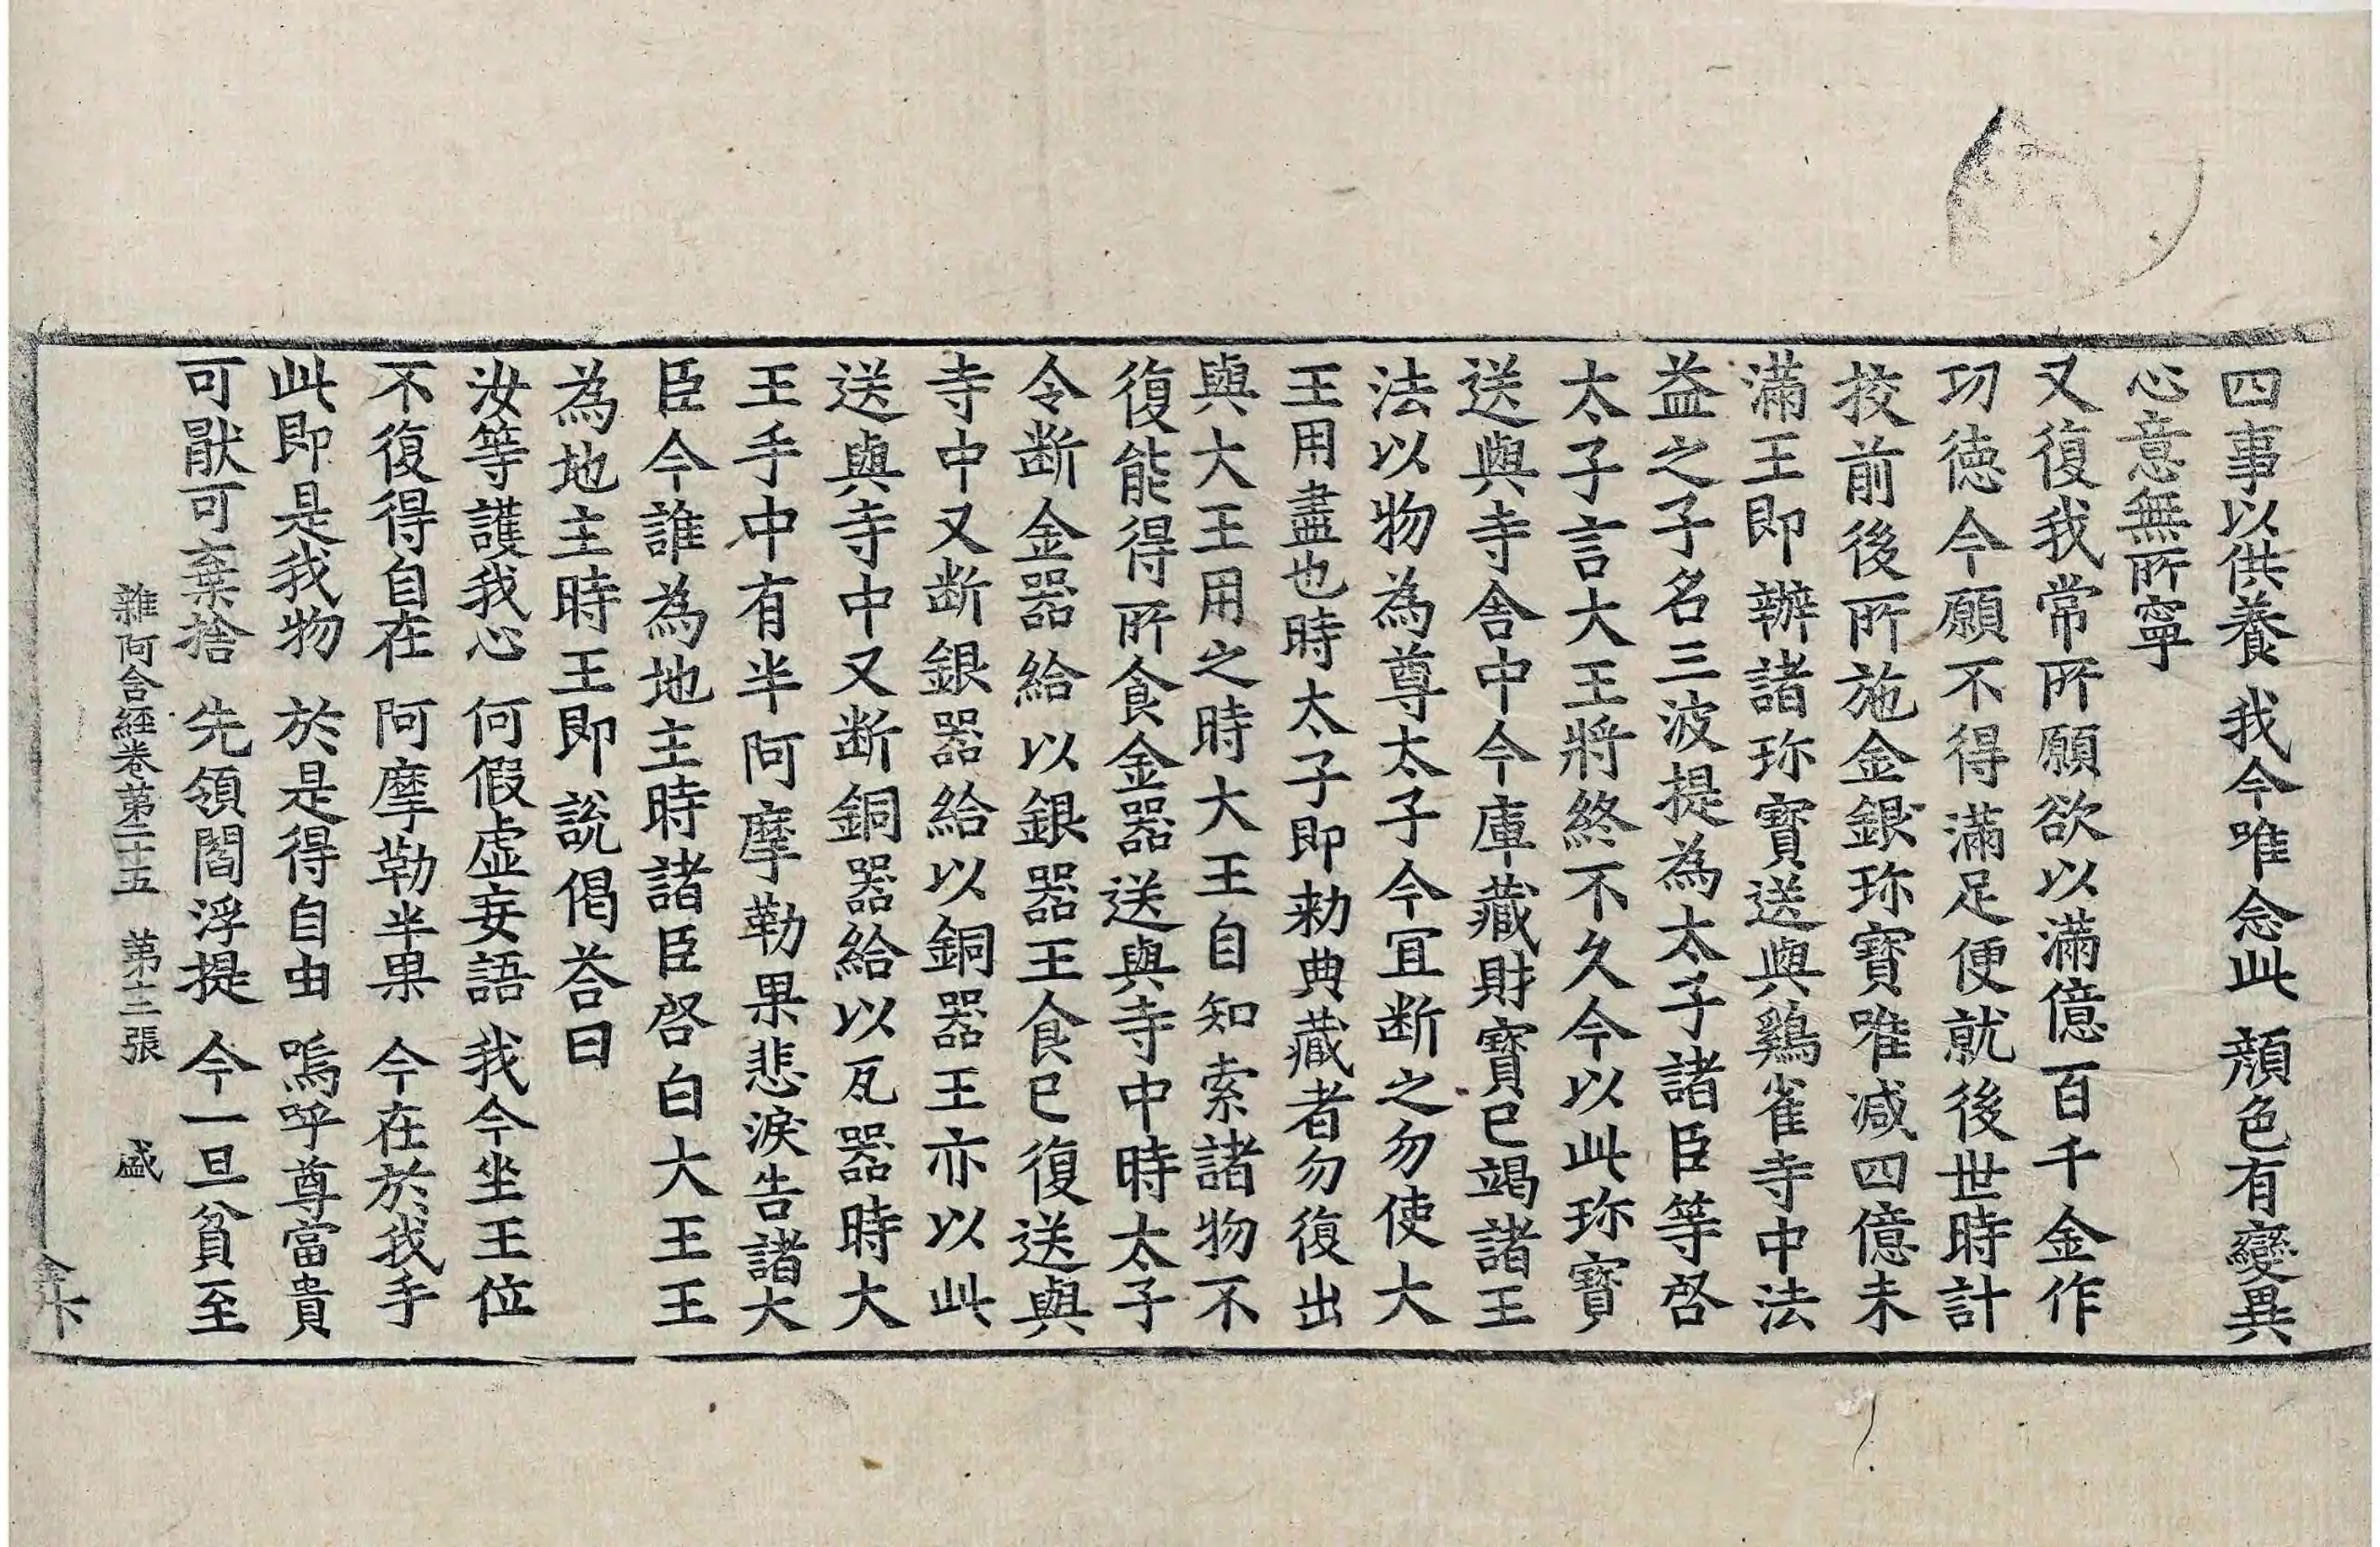 四事以供養 我今唯念此 顏色有變異
心意無所寧
又復我常所願欲以滿億百千金作
功德今願不得滿足便就後世時計
挍前後所施金銀珎寶唯減四億未
滿王即辦諸珎寶送與鷄雀寺中法
益之子名三波提為太子諸臣等啓
太子言大王將終不久今以此珎寶
送與寺舍中今庫藏財寶已竭諸王
法以物為尊太子今冝断之勿使大
王用盡也時太子即勑典藏者勿復出
與大王用之時大王自知索諸物不
復能得所食金器送與寺中時太子
令断金器給以銀器王食已復送與
寺中又断銀器給以銅器王亦以此
送與寺中又断銅器給以瓦器時大
王手中有半阿摩勒果悲淚告諸大
臣今誰為地主時諸臣啓白大王王
為地主時王即說偈荅曰
汝等護我心 何假虛妄語 我今坐王位
不復得自在 阿摩勒半果 今在於我手
此即是我物 於是得自由 嗚呼尊富貴
可猒可棄捨 先領閻浮提 今一旦貧至
雜阿含經卷第二十五 第十二張 盛